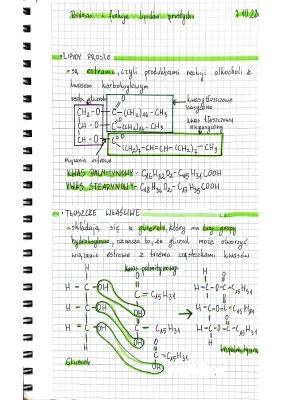 Budowa i funkcje lipidów prostych
7.10.22
•LIPIDY PROSTE
- są estrami, czyli produktami reakcji alkoholi z
kwasem karboksylowym
reszta glicerolu
kwasy tłuszczowe
nasycone
CH₂-O-C-(CH₂)₁₄-CH₃
CH-O-C-(CH₂)₁₆-CH₃
kwas tłuszczowy
nienasycony
CH-O-C-(CH₂)₇-CH=CH-(CH₂)₇-CH₃
Wiązania estrowe
KWAS PALMITYNOWY - C₁₆H₃₂O₂ - C₁₅H₃₁COOH
KWAS STEARYNOWY - C₁₈H₃₆O₂ - C₁₇H₃₅COOH
•TŁUSZCZE WŁAŚCIWE
- składają się z glicerolu, który ma trzy grupy
hydroksylowe, oznacza to, że glicerol może utworzyć
wiązanie estrowe z trzema cząsteczkami kwasów
kwas palmitynowy
H
H-C-OH
C-C₁₅H₃₁
H-C-O-C-C₁₅H₃₁
H-C-OH
OH
C-C₁₅H₃₁
H-C-O-C-C₁₅H₃₁
H-C-OH
OH
H-C-O-C-C₁₅H₃₁
H
C-C₁₅H₃₁
H
Glicerol
OH